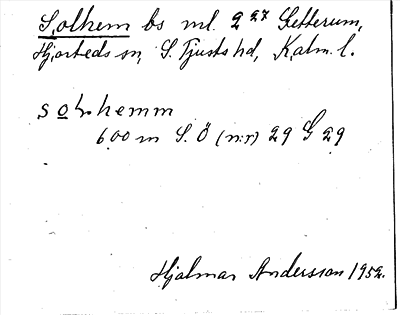 Solhem bs ml. 2²⁷ Getterum,
Hjorteds sn, S. Tjusts hd, Kalm. l.
so hemm
600 m S. Ö (nr) 29 G 29
Hjalmar Andersson 1952.